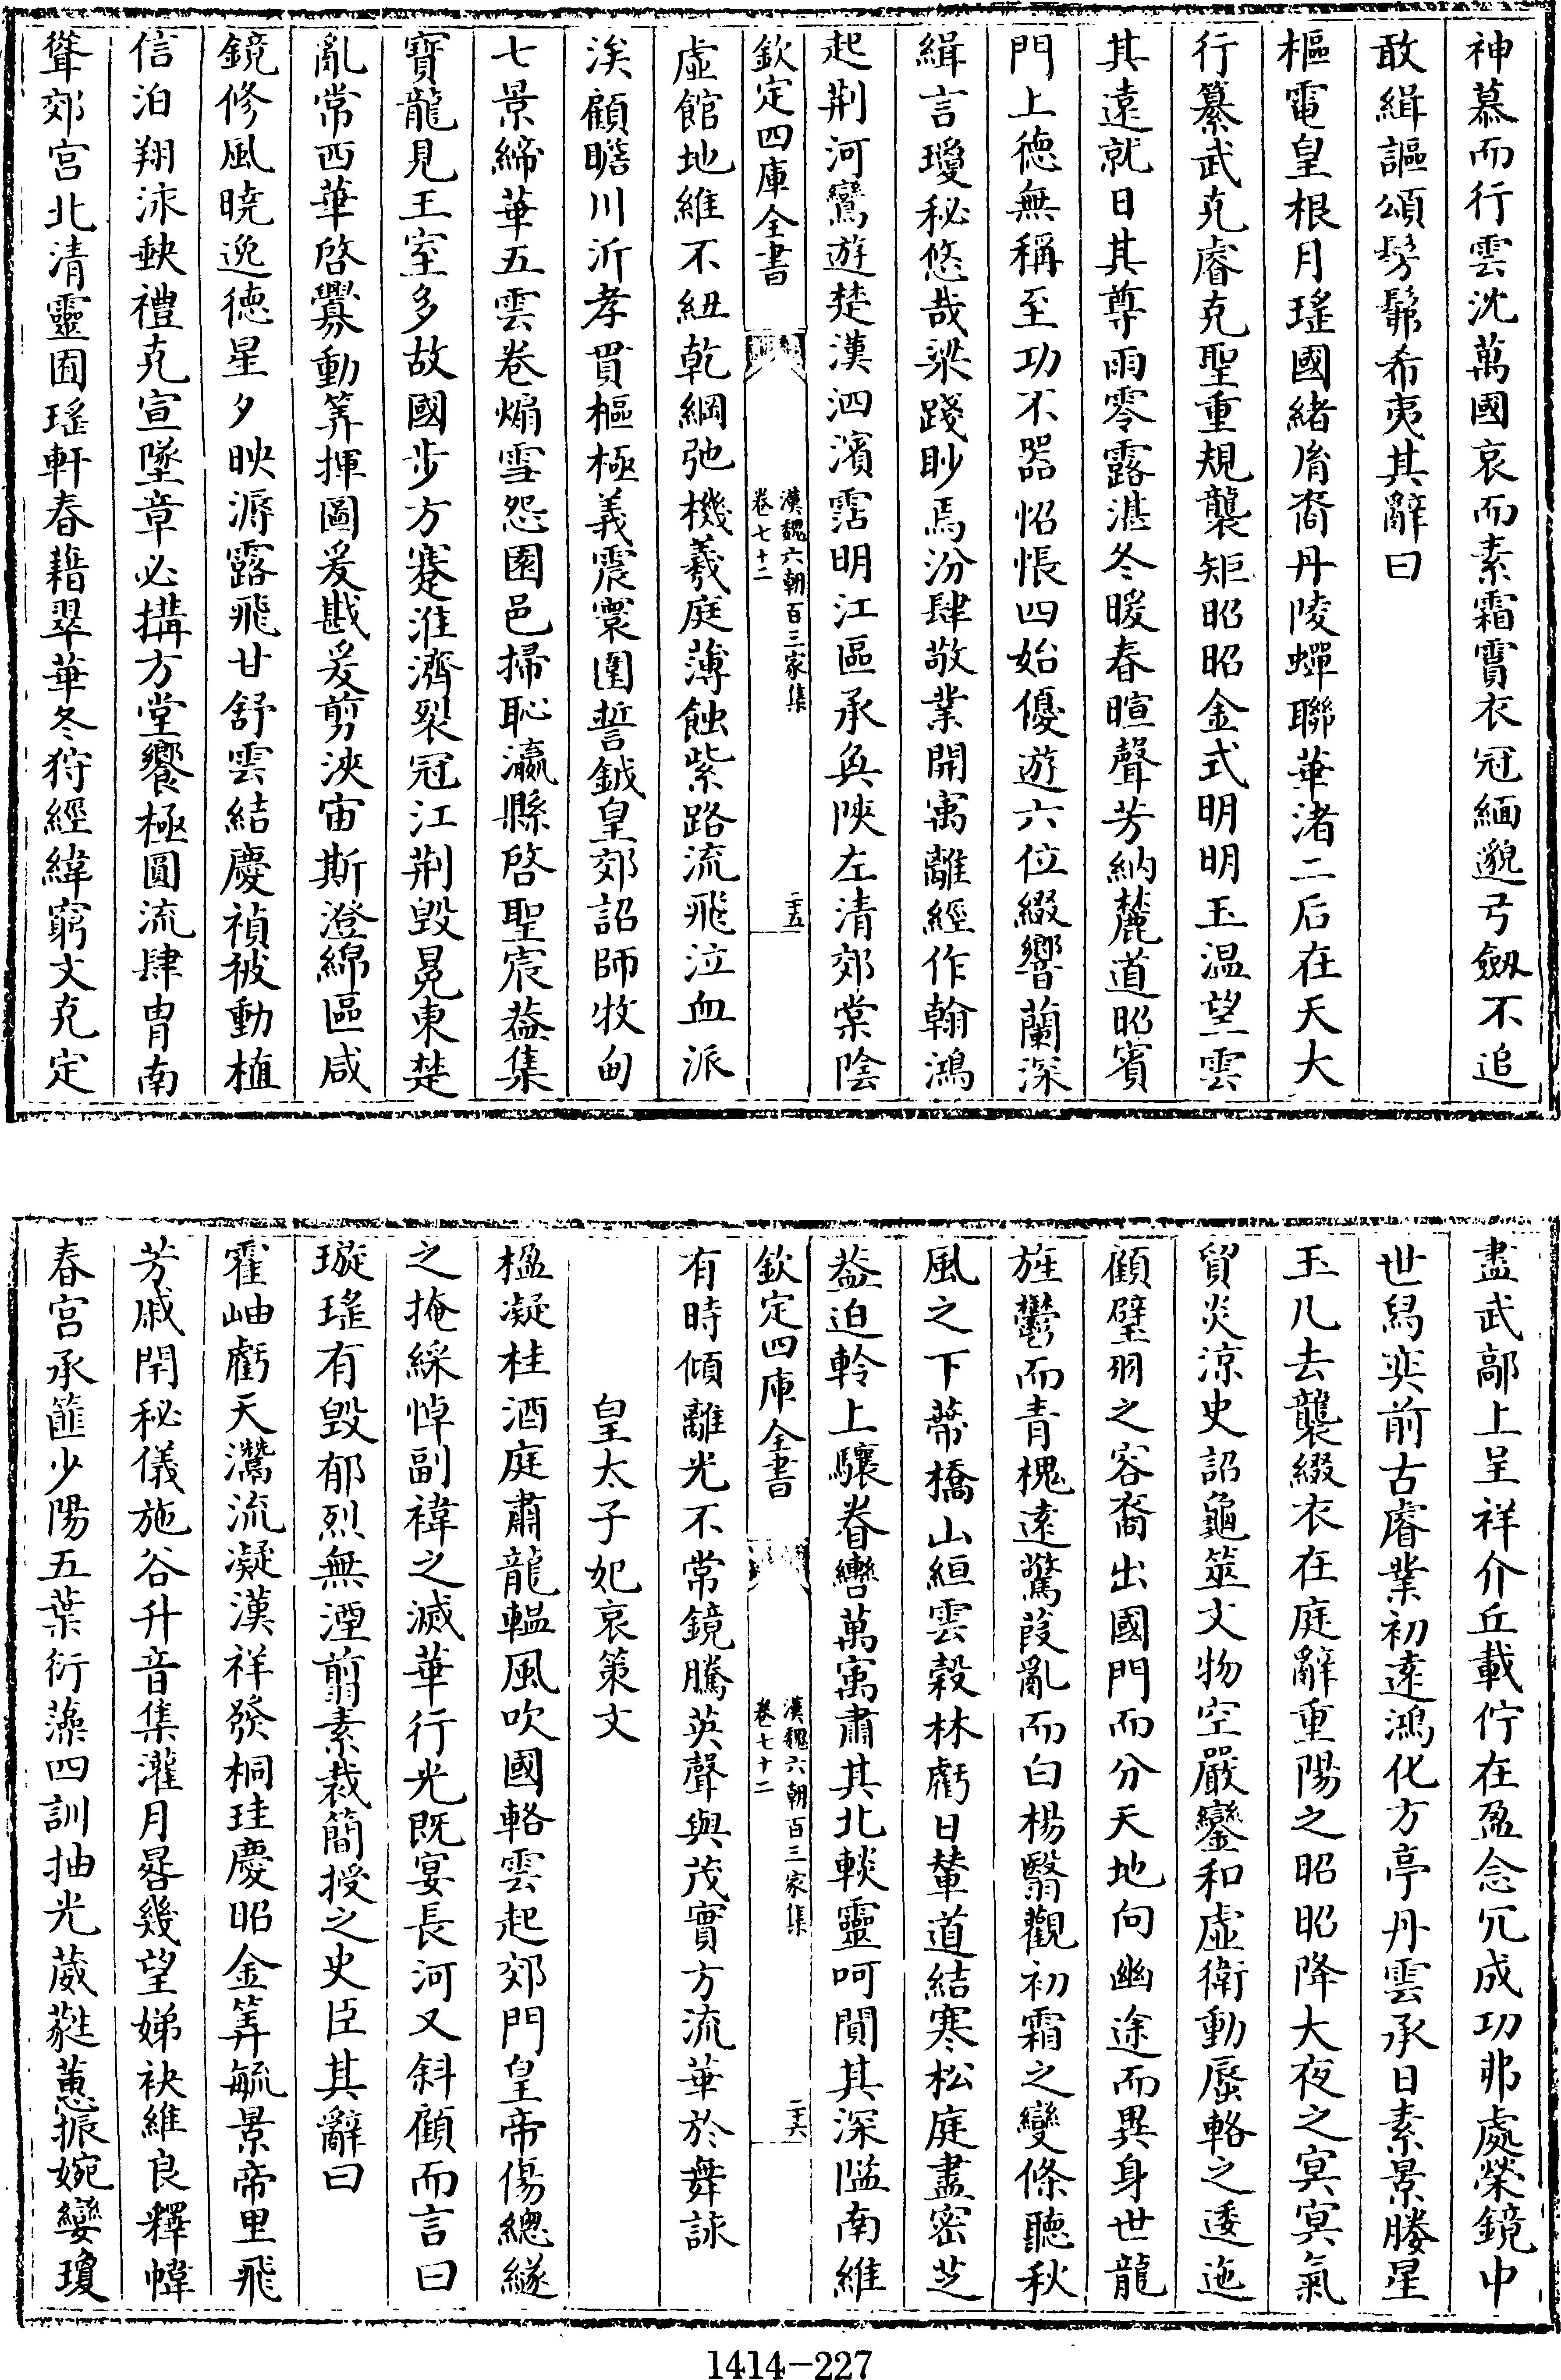 神慕而行雲沈萬國哀而素霜霣衣冠緬邈弓劔不追
敢緝謳頌髣髴希夷其辭曰
樞電皇根月瑤國緒脣裔丹陵蟬聯華渚二后在天大
行纂武克睿克聖重規襲矩昭昭金式明明玉温望雲
其遠就日其尊雨零露湛冬暖春暄聲芳納麓道昭賓
門上徳無稱至功不器怊悵四始優遊六位綴響蘭深
緝言瓊秘悠哉梁踐眇焉汾肆敬業開寓離經作翰鴻
起荆河鸞遊楚漢泗濱霑明江區承奐陜左清郊棠陰
欽定四庫全書
漢魏六朝百三家集
卷七十二
二五
虚館地維不紐乾綱弛機羲庭薄蝕紫路流飛泣血派
涘顧瞻川沂孝貫樞極義震寰圍誓鉞皇郊詔師牧甸
七景締華五雲卷煽雪怨園邑掃恥瀛縣啓聖宸葢集
寶龍見王室多故國步方蹇淮濟裂冠江荆毁冕東楚
亂常西華啓釁動筭揮圖爰戡爰剪浹宙斯澄綿區咸
鏡修風曉逸徳星夕映溽露飛甘舒雲結慶禎被動植
信洎翔泳軼禮克宣墜章必搆方堂饗極圓流肆胄南
聳郊宫北清靈囿瑤軒春藉翠華冬狩經緯窮文克定
盡武鄗上呈祥介丘載佇在盈念冗成功弗處榮鏡中
世舄奕前古睿業初遠鴻化方亭丹雲承日素景媵星
玉几去襲綴衣在庭辭重陽之昭昭降大夜之冥冥氣
貿炎涼史詔龜筮文物空嚴鑾和虚衛動蜃輅之逶迤
顧璧羽之容裔出國門而分天地向幽途而異身世龍
旌鬱而青槐遠驚葭亂而白楊翳觀初霜之變條聽秋
風之下蔕橋山絙雲穀林虧日輦道結寒松庭盡密芝
葢迫軨上驤眷轡萬寓肅其北轊靈呵閴其深隘南維
欽定四庫全書
漢魏六朝百三家集
卷七十二
二六
有時傾離光不常鏡騰英聲與茂實方流華於舞詠
皇太子妃哀策文
楹凝桂酒庭肅龍轀風吹國輅雲起郊門皇帝傷總縿
之掩綵悼副褘之滅華行光既宴長河又斜顧而言曰
璇瑤有毁郁烈無湮翦素裁簡授之史臣其辭曰
霍岫虧天灊流凝漢祥發桐珪慶昭金筭毓景帝里飛
芳戚閈秘儀施谷升音集灌月晷幾望娣袂維良釋幃
春宫承篚少陽五葉衍藻四訓抽光葳蕤蕙振婉孌瓊
1414-227